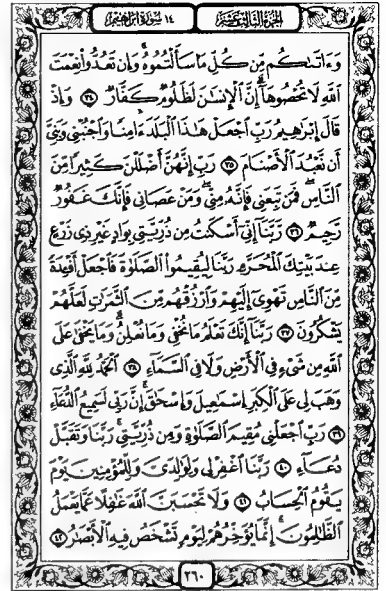 الجزء الثالث عشر
١٤ سورة إبراهيم
وَءَاتَىٰكُم مِّن كُلِّ مَا سَأَلْتُمُوهُ ۚ وَإِن تَعُدُّوا۟ نِعْمَتَ
ٱللَّهِ لَا تُحْصُوهَآ ۗ إِنَّ ٱلْإِنسَـٰنَ لَظَلُومٌ كَفَّارٌ ٣٤ وَإِذْ
قَالَ إِبْرَٰهِيمُ رَبِّ ٱجْعَلْ هَـٰذَا ٱلْبَلَدَ ءَامِنًا وَٱجْنُبْنِى وَبَنِىَّ
أَن نَّعْبُدَ ٱلْأَصْنَامَ ٣٥ رَبِّ إِنَّهُنَّ أَضْلَلْنَ كَثِيرًا مِّنَ
ٱلنَّاسِ ۖ فَمَن تَبِعَنِى فَإِنَّهُۥ مِنِّى ۖ وَمَنْ عَصَانِى فَإِنَّكَ غَفُورٌ
رَّحِيمٌ ٣٦ رَّبَّنَآ إِنِّىٓ أَسْكَنتُ مِن ذُرِّيَّتِى بِوَادٍ غَيْرِ ذِى زَرْعٍ
عِندَ بَيْتِكَ ٱلْمُحَرَّمِ رَبَّنَا لِيُقِيمُوا۟ ٱلصَّلَوٰةَ فَٱجْعَلْ أَفْـِٔدَةً
مِّنَ ٱلنَّاسِ تَهْوِىٓ إِلَيْهِمْ وَٱرْزُقْهُم مِّنَ ٱلثَّمَرَٰتِ لَعَلَّهُمْ
يَشْكُرُونَ ٣٧ رَبَّنَآ إِنَّكَ تَعْلَمُ مَا نُخْفِى وَمَا نُعْلِنُ ۗ وَمَا يَخْفَىٰ عَلَى
ٱللَّهِ مِن شَىْءٍ فِى ٱلْأَرْضِ وَلَا فِى ٱلسَّمَآءِ ٣٨ ٱلْحَمْدُ لِلَّهِ ٱلَّذِى
وَهَبَ لِى عَلَى ٱلْكِبَرِ إِسْمَـٰعِيلَ وَإِسْحَـٰقَ ۚ إِنَّ رَبِّى لَسَمِيعُ ٱلدُّعَآءِ
٣٩ رَبِّ ٱجْعَلْنِى مُقِيمَ ٱلصَّلَوٰةِ وَمِن ذُرِّيَّتِى ۚ رَبَّنَا وَتَقَبَّلْ
دُعَآءِ ٤٠ رَبَّنَا ٱغْفِرْ لِى وَلِوَٰلِدَىَّ وَلِلْمُؤْمِنِينَ يَوْمَ
يَقُومُ ٱلْحِسَابُ ٤١ وَلَا تَحْسَبَنَّ ٱللَّهَ غَـٰفِلًا عَمَّا يَعْمَلُ
ٱلظَّـٰلِمُونَ ۚ إِنَّمَا يُؤَخِّرُهُمْ لِيَوْمٍ تَشْخَصُ فِيهِ ٱلْأَبْصَـٰرُ ٤٢
٢٦٠